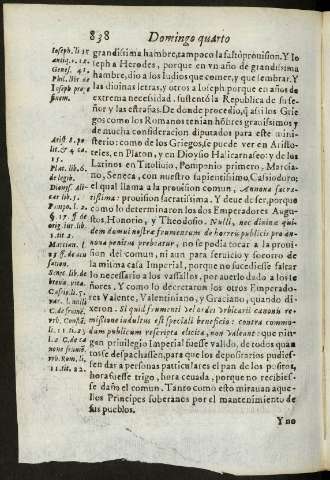 838 Domingo quarto
grandissima hambre, tampoco la faltò prouision. Y Io
seph à Herodes, porque en vn año de grandissima
hambre, dio a los Iudios que comer, y que sembrar. Y
las diuinas letras, y otros a Ioseph porque en años de
extrema necessidad, sustentò la Republica de su se-
ñor y las estrañas. De donde procedio, q̃ assi los Grie
gos como los Romanos tenian hõbres grauissimos y
de mucha consideracion diputados para este mini-
sterio: como de los Griegos, se puede ver en Aristo-
teles, en Platon, y en Dioysio Halicarnaseo: y de los
Latinos en Titoliuio, Pomponio primero, Marcia-
no, Seneca, con nuestro sapientissimo, Casiodoro;
el qual llama a la prouision comun, Annona sacra-
tissima: prouision sacratissima. Y deue de ser, porque
como lo determinaron los dos Emperadores Augu-
stos, Honorio, y Theodosio. Nulli, nec diuina qui-
dem domui nostræ frumentum de horreis publicis pro an-
nona penitus probatur, no se podia tocar a la proui
sion del comun, ni aun para seruicio y socorro de
la misma casa Imperial, porque no sucediesse faltar
lo necessario a los vassallos, por auerlo dado a los se
ñores. Y como lo decretaron los otros Emperado-
res Valente, Valentiniano, y Graciano, quando di-
xeron. Si quid frumenti del ordei vrbicarii canonis re-
missione indultus est speciali beneficio: contra commo-
dum publicum rescripta elicita, non valeant: que nin-
gen priuilegio Imperial fuesse valido, de todos quan
tosse despachassen, para que los depositarios pudies-
sen dar a personas particulares el pan de los positos,
hora fuesse trigo, hora ceuada, porque no recibies-
se daño el comun. Tanto como esto mirauan aque-
llos Principes soberanos por el mantenimiento de
sus pueblos.
Y no
Ioseph. li. 15
antiq. c. 12.
Genes. 41.
Phil. libr de
Ioseph pro-
finem.
Arist. 8. po
lit. & 4 ca.
15.
Plat. lib. 6.
de legib.
Dionys. Ali-
car lib. 5.
Pompo. lib.
1. tit. 2.
Marcian. l.
Senec. lib. de
breuit. vita.
Casio. li. 5.
11. tit. 22.